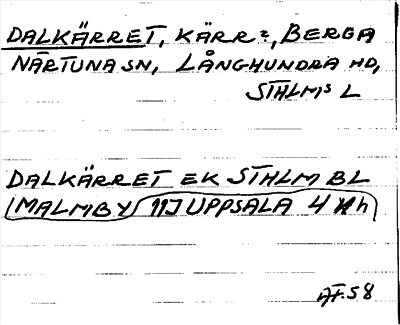 DALKÄRRET, KÄRR?, BERGA
NÄRTUNA SN, LÅNGHUNDRA HD,
STHLMS L
DALKÄRRET EK STHLM BL
MALMBY 11J UPPSALA 4 h
ÄT. 58